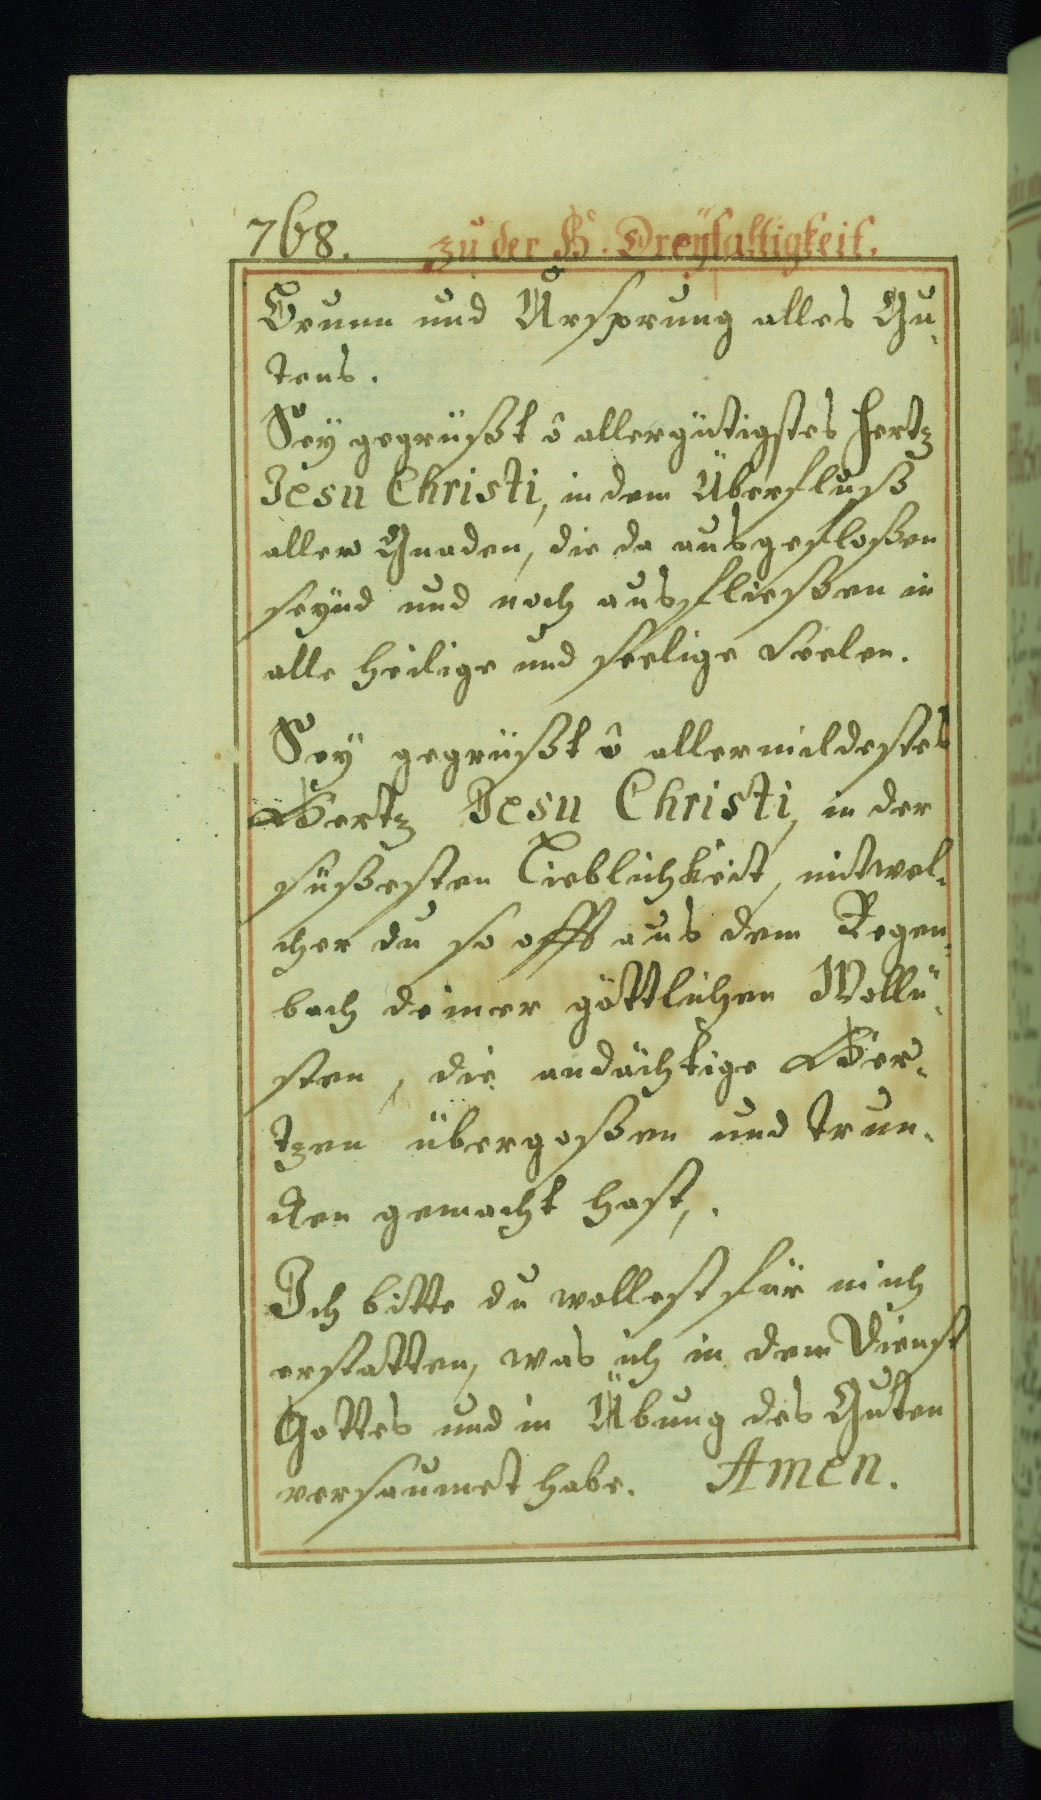 768. zu der H. Dreÿfaltigkeit.
Brunn und Ursprung alles Gu-
tens.
Seÿ gegrüßt ô allergütigstes hertz
Jesu Christi, in dem Überfluß
aller Gnaden, die da ausgefloßen
seÿnd und noch ausfließen in
alle heilige und seelige Seelen.
Seÿ gegrüßt ô allermildestes
Hertz Jesu Christi, in der
süßesten Lieblichkeit, mit wel-
cher du so offt aus dem Regen-
bach deiner göttlichen Wollü-
sten, die andächtige Her-
tzen übergoßen und trun-
cken gemacht hast,.
Ich bitte du wollest für mich
erstatten, was ich in dem Dienst
Gottes und in Übung des Guten
versaumet habe. Amen.